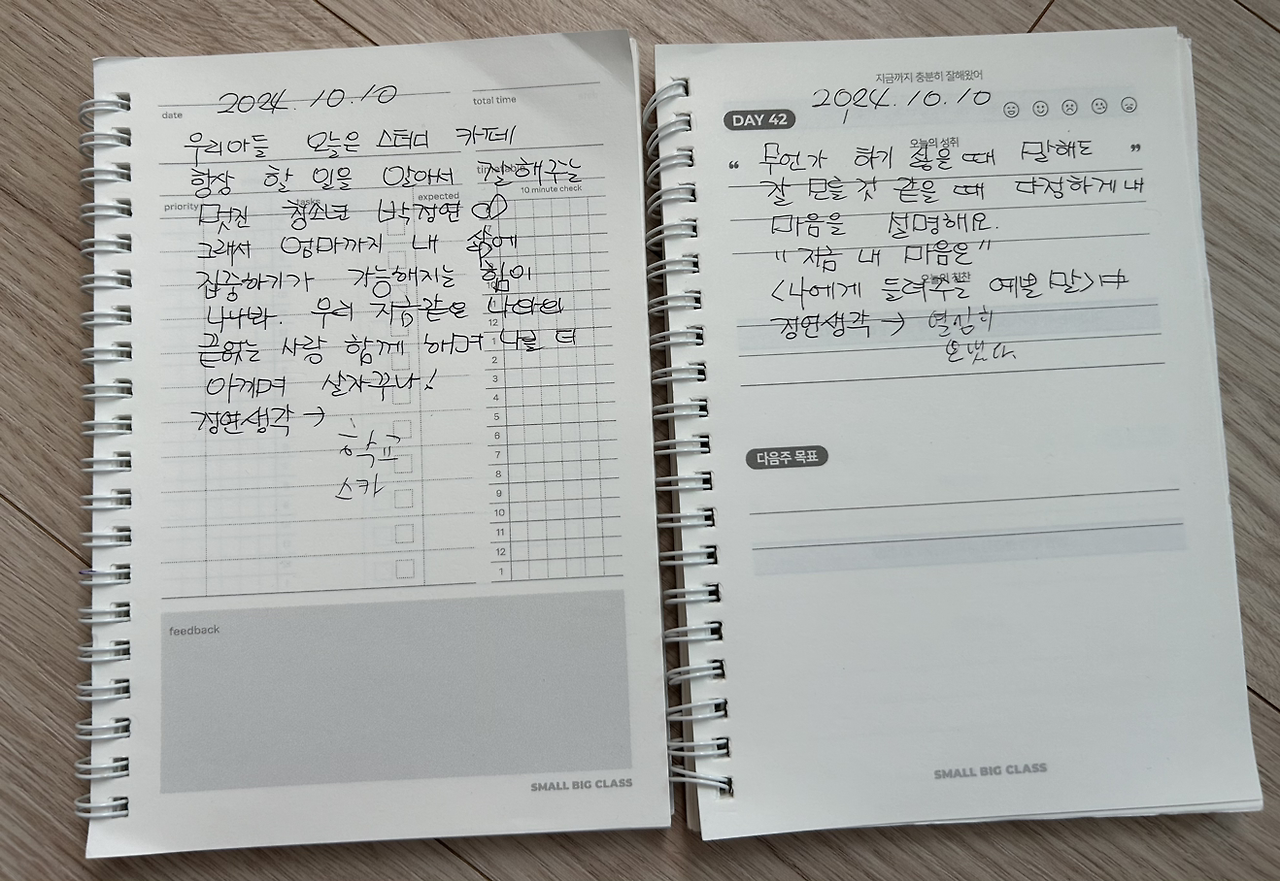 date 2024.10.10
total time
우리아들 오늘은 스터디 카페
항상 할 일을 알아서 잘해주는
priority tasks expected 10 minute check
멋진 청소년 박정연
그래서 엄마까지 내 삶에
집중하기가 가능해지는 힘이
나나봐. 우리 지금같은 나와의
끝없는 사랑 함께 하며 나를 더
아끼며 살자꾸나!
정연생각 →
학교
스카
12
1
2
3
4
5
6
7
8
9
10
11
12
1
feedback
SMALL BIG CLASS
지금까지 충분히 잘해왔어
DAY 42 2024.10.10
오늘의 성취
“ 무언가 하기 싫을 때 말해도 ”
잘 모를 것 같을 때 다정하게 내
마음을 설명해요.
"지금 내 마음은"
오늘의 칭찬
<나에게 들려주는 예쁜 말>
정연생각 → 열심히
보냈다.
다음주 목표
SMALL BIG CLASS